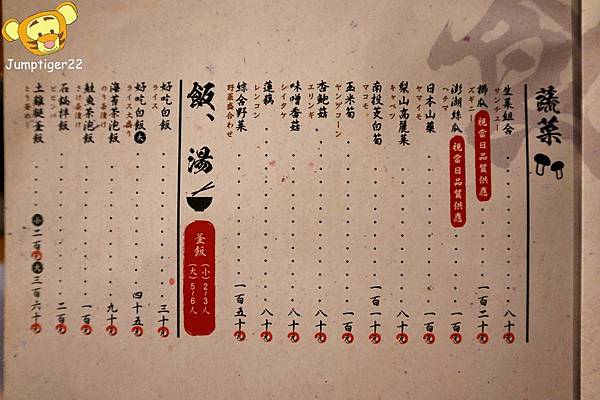 Jumptiger22
蔬菜
生菜組合 八十元
サンチュー
櫛瓜 視當日品質供應 一百二十元
ズギィニー
澎湖絲瓜 視當日品質供應 八十元
ヘチマ
日本山藥 一百元
ヤマイモ
梨山高麗菜 八十元
キャベツ
南投茭白筍 一百一十元
マコモ
玉米筍 一百元
ヤングコーン
杏鮑菇 八十元
エリンギ
味噌香菇 八十元
シイタケ
蓮藕 八十元
レンコン
綜合野菜 一百五十元
野菜盛合わせ
飯、湯
釜飯 (小)2/3人 (大)5/6人
好吃白飯 三十元
ライス
好吃白飯大 四十五元
ライス大盛り
海苔茶泡飯 九十元
のり茶漬け
鮭魚茶泡飯 一百元
さけ茶漬け
石鍋拌飯 二百元
ビビンバ
土雞腿釜飯 小二百元 大三百六十元
とり釜めし